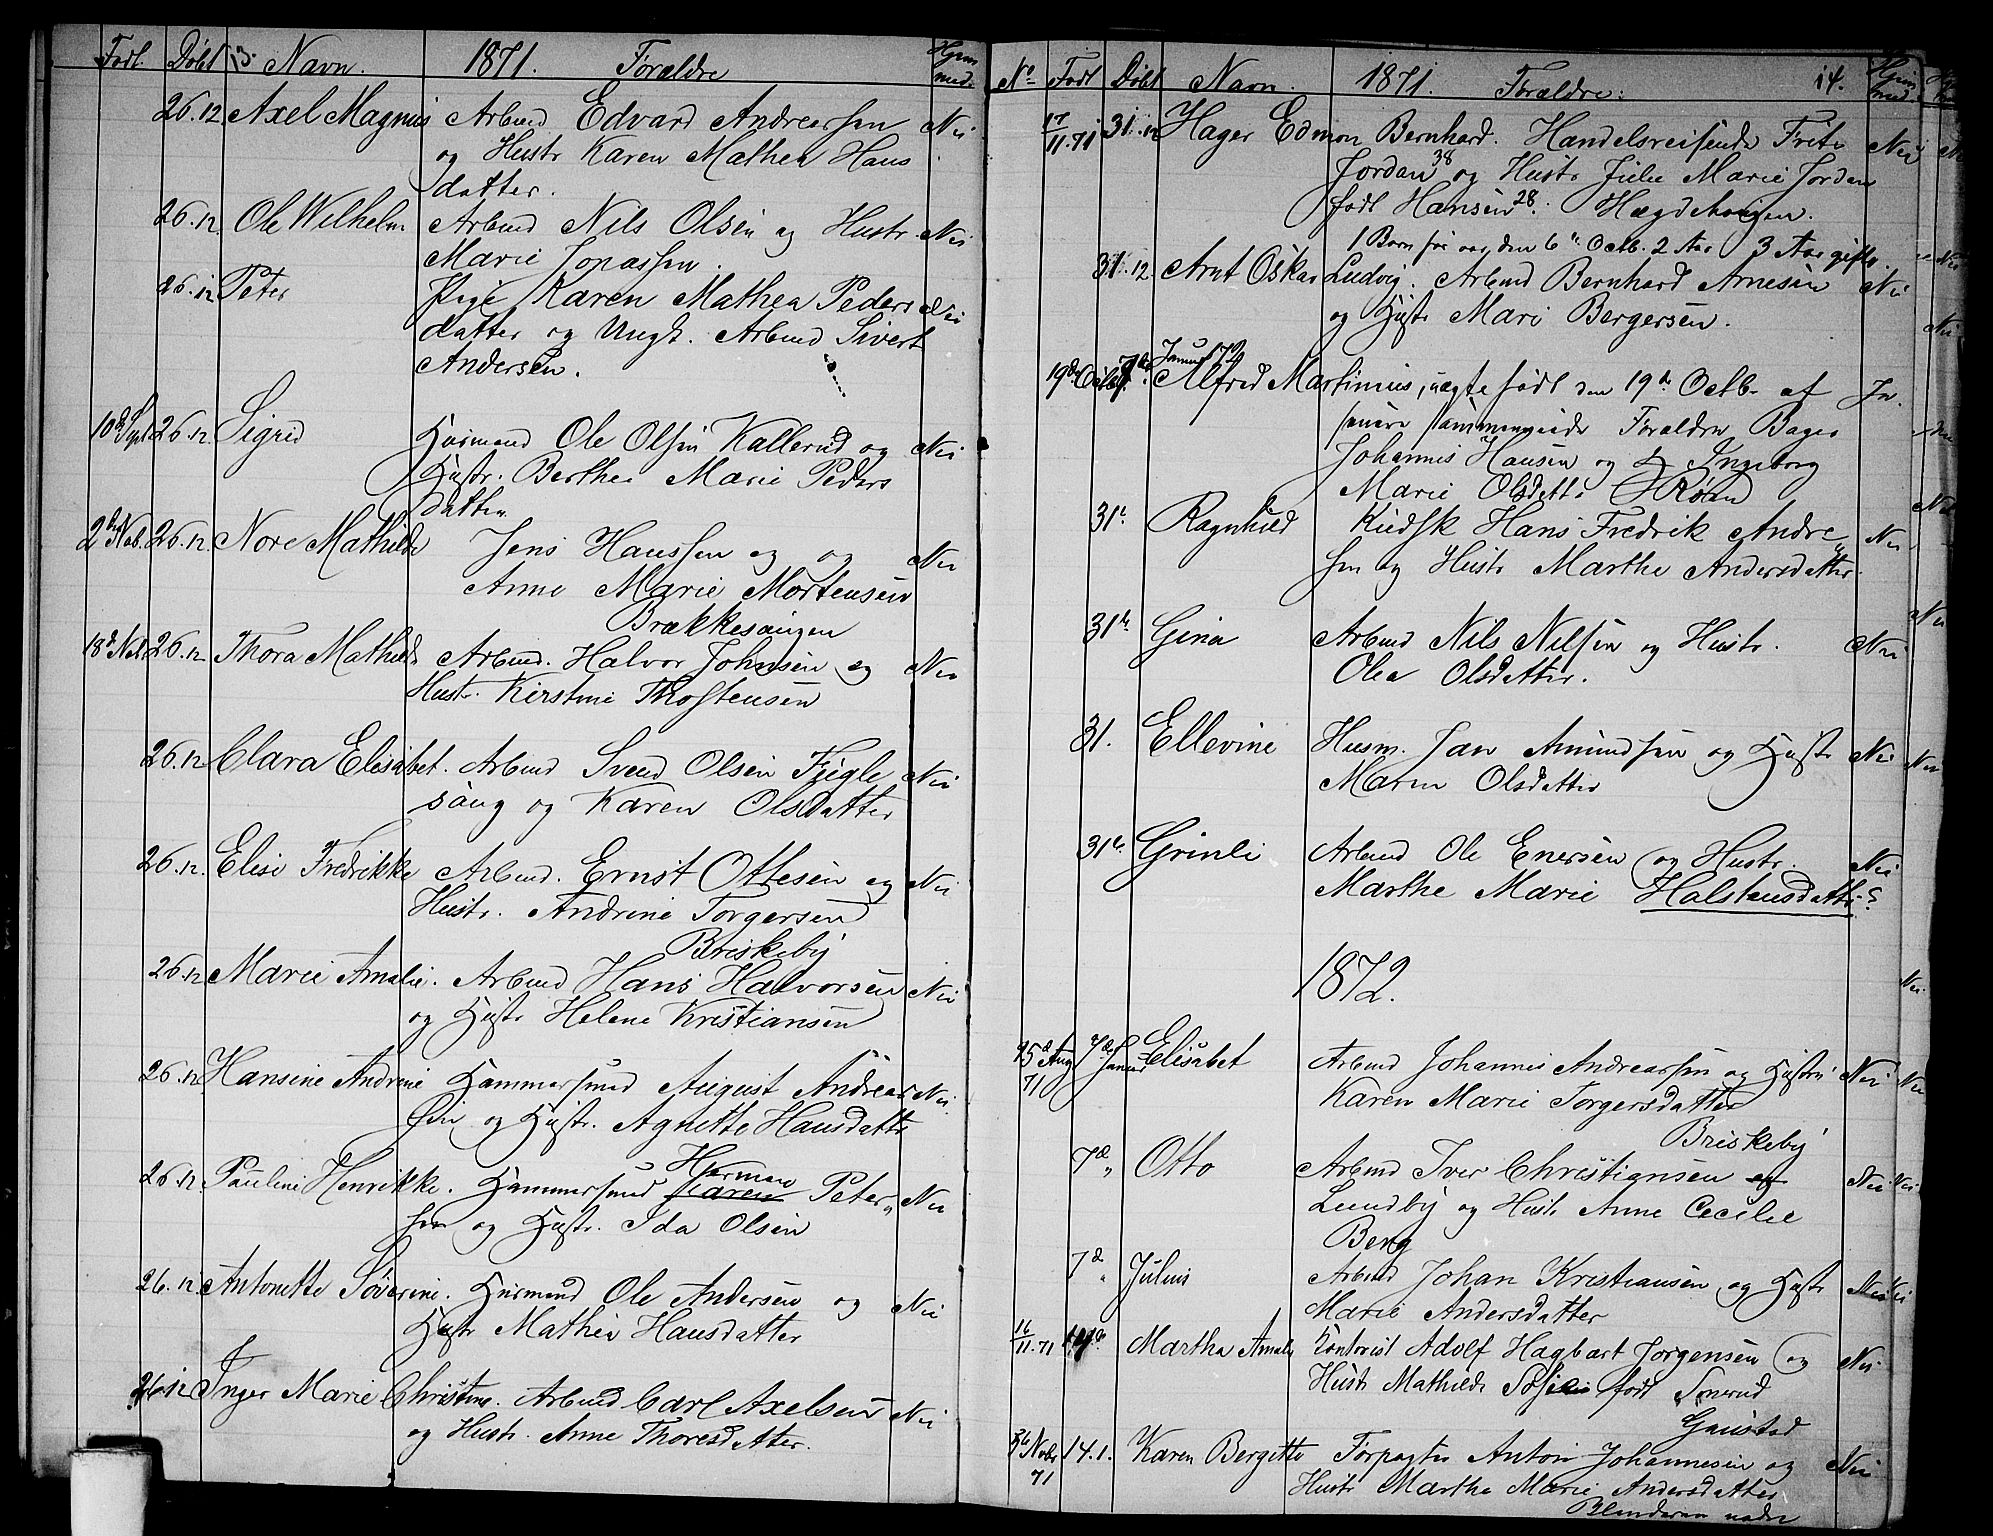 Født. Døbt 13. Navn. 1871. Forældre Hjem med.
26.12 Axel Magnus Arbmd Edvard Andreassen Nei
og Hustr Karen Mathea Hans
datter.
26.12. Ole Wilhelm Arbmd Nils Olsen og Hustr. Nei
Marie Jonassen.
26.12 Peter Pige Karen Mathea Peders Nei
datter og Ungk. Arbmd Sivert
Andersen.
10d Sept 26.12 Sigred Husmand Ole Olsen Kallerud og Nei
Hustr. Berthe Marie Peders
datter
2den Nob. 26.12. Nore Mathilde Jens Hanssen og og Nei
Anne Marie Mortensen
Brækkesaugen
18d Nob 26.12 Thora Mathilde Arbmd. Halvor Johnsen og Nei
Hustr. Kirstine Thostensen
26.12 Clara Elisabet. Arbmd Svend Olsen Fjegle Nei
saug og Karen Olsdatter
26.12. Elise Fredrikke Arbmd. Ernst Ottesen og Nei
Hustr. Andrine Torgersen
Briskeby
26.12 Marie Amalie. Arbmd Hans Halvorsen Nei
og Hustr Helene Kristiansen
26.12 Hansine Andrine Hammersmed August Andreas Nei
sen og Hustr. Agnette Hansdatter
Herman
26.12. Pauline Henrikke. Hammersmed Karen Peter„ Nei
sen og Hustr. Ida Olsen
26.12. Antonette Severine. Husmand Ole Andersen og Nei
Hustr Mathea Hansdatter
26.12 Inger Marie Christine. Arbmd Carl Axelsen Nei
og Hustr. Anne Thoresdatter.
No Født Døbt Navn. 1871. Forældre: 14. Hjem med.
17/11.71 31.12 Hager Edmon Bernhard. Handelsreisende Fritz Nei
Jordan 38 og Hustr Julie Marie Jordan
født Hansen 28. Hægdehaugen.
1 Barn før var den 6te Octb. 2 Aar 3 Aar gifte.
31.12. Arnt Oskar Ludvig. Arbmd Bernhard Arnesen Nei
og Hustr Mari Bergersen.
Januar 1872
19de Octbr. 7de Alfred Martinius, uægte født den 19de Octb. af Ja.
senere sammenviede Forældre Bager
Johannes Hansen og Ingeborg
Marie Olsdatter
31te Ragnhild Kudsk Hans Fredrik Andre Nei
sen og Hustr Marthe Andersdatter.
31te Gina Arbmd Nils Nilsen og Hustr. Nei
Olea Olsdatter.
31. Ellevine Husm. Jan Amundsen og Hustr Nei
Maren Olsdatter
31te Grinli Arbmd Ole Enersen og Hustr. Nei
Marthe Marie Halstensdatter?
1872.
25de Aug 71 7de Januar Elisabet Arbmd Johannes Andreassen og Hustru Nei
Karen Marie Torgersdatter
Briskeby
7de „ Otto Arbmd Iver Christiansen og Nei
Lundby og Hustr Anne Cecilie
Berg
7de „ Julius Arbmd Johan Kristiansen og Hustr Nei
Marie Andersdatter
16/11.71 Martha Amalie Kontorist Adolf Hagbart Jørgensen og Nei
Hustr Mathilde født
Gaustad
Nobr 71 14.1. Karen Bergitte Forpagter Anton Johannesen og Nei
Hustr Marthe Marie Andersdatter